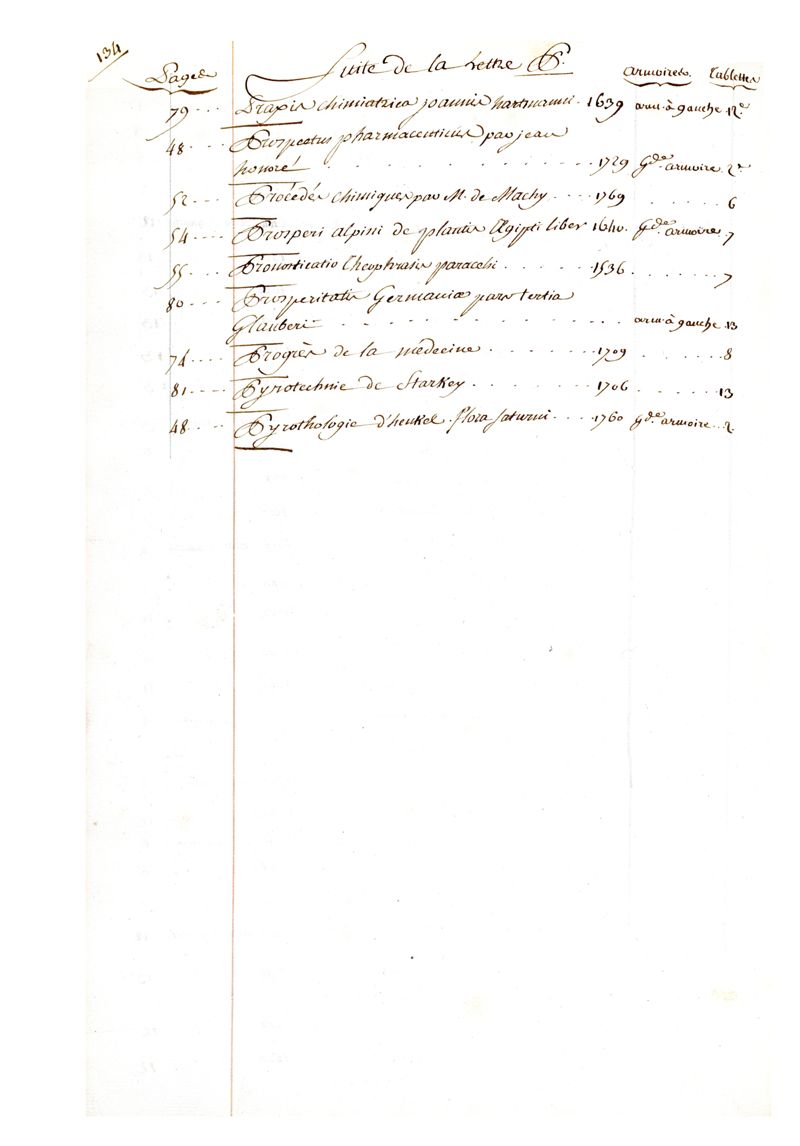 134
Pages Suite de la Lettre P. armoires. Tablettes
79 ... Praxis chimiatrica joannis hartmanni . 1639 arm. à gauche 12.e
48 ... Prospectus pharmaceuticus par jean
honoré ... 1729 G.de armoire. 2.e
52 ... Procédés chimiques par M. de Machy .... 1769 ... 6
54 .... Prosperi alpini de plantis Ægipti liber 1640. G.de armoire. 7
55 .... Pronosticatio Theophrasis paracelsi ...... 1536 ....... 7
80 ... Prosperitatis Germaniæ pars tertia
Glauberi ... arm. à gauche 13
74 .... Progrès de la médecine ...... 1709 ...... 8
81 .... Pyrotechnie de Starkey ...... 1706 ...... 13
48 .... Pyrothologie d'henkel. flora saturni .... 1760 G.de armoire .. 2.